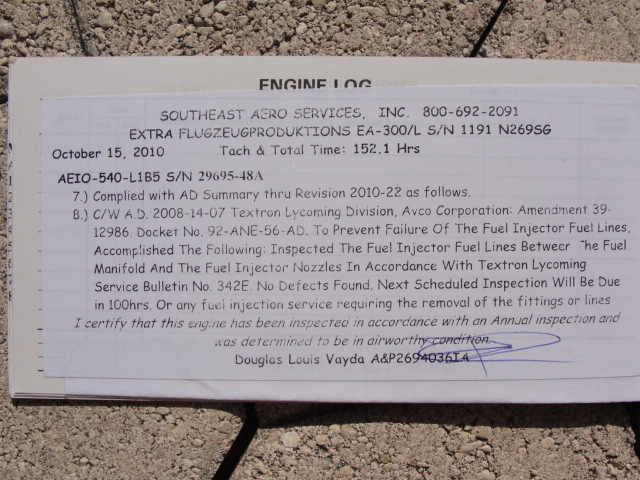 ENGINE LOG
SOUTHEAST AERO SERVICES, INC. 800-692-2091
EXTRA FLUGZEUGPRODUKTIONS EA-300/L S/N 1191 N269SG
October 15, 2010 Tach & Total Time: 152.1 Hrs
AEIO-540-L1B5 S/N 29695-48A
7.) Complied with AD Summary thru Revision 2010-22 as follows.
8.) C/W A.D. 2008-14-07 Textron Lycoming Division, Avco Corporation: Amendment 39-
12986. Docket No. 92-ANE-56-AD. To Prevent Failure Of The Fuel Injector Fuel Lines,
Accomplished The Following: Inspected The Fuel Injector Fuel Lines Between The Fuel
Manifold And The Fuel Injector Nozzles In Accordance With Textron Lycoming
Service Bulletin No. 342E. No Defects Found. Next Scheduled Inspection Will Be Due
in 100hrs. Or any fuel injection service requiring the removal of the fittings or lines
I certify that this engine has been inspected in accordance with an Annual inspection and
was determined to be in airworthy condition.
Douglas Louis Vayda A&P2694036IA